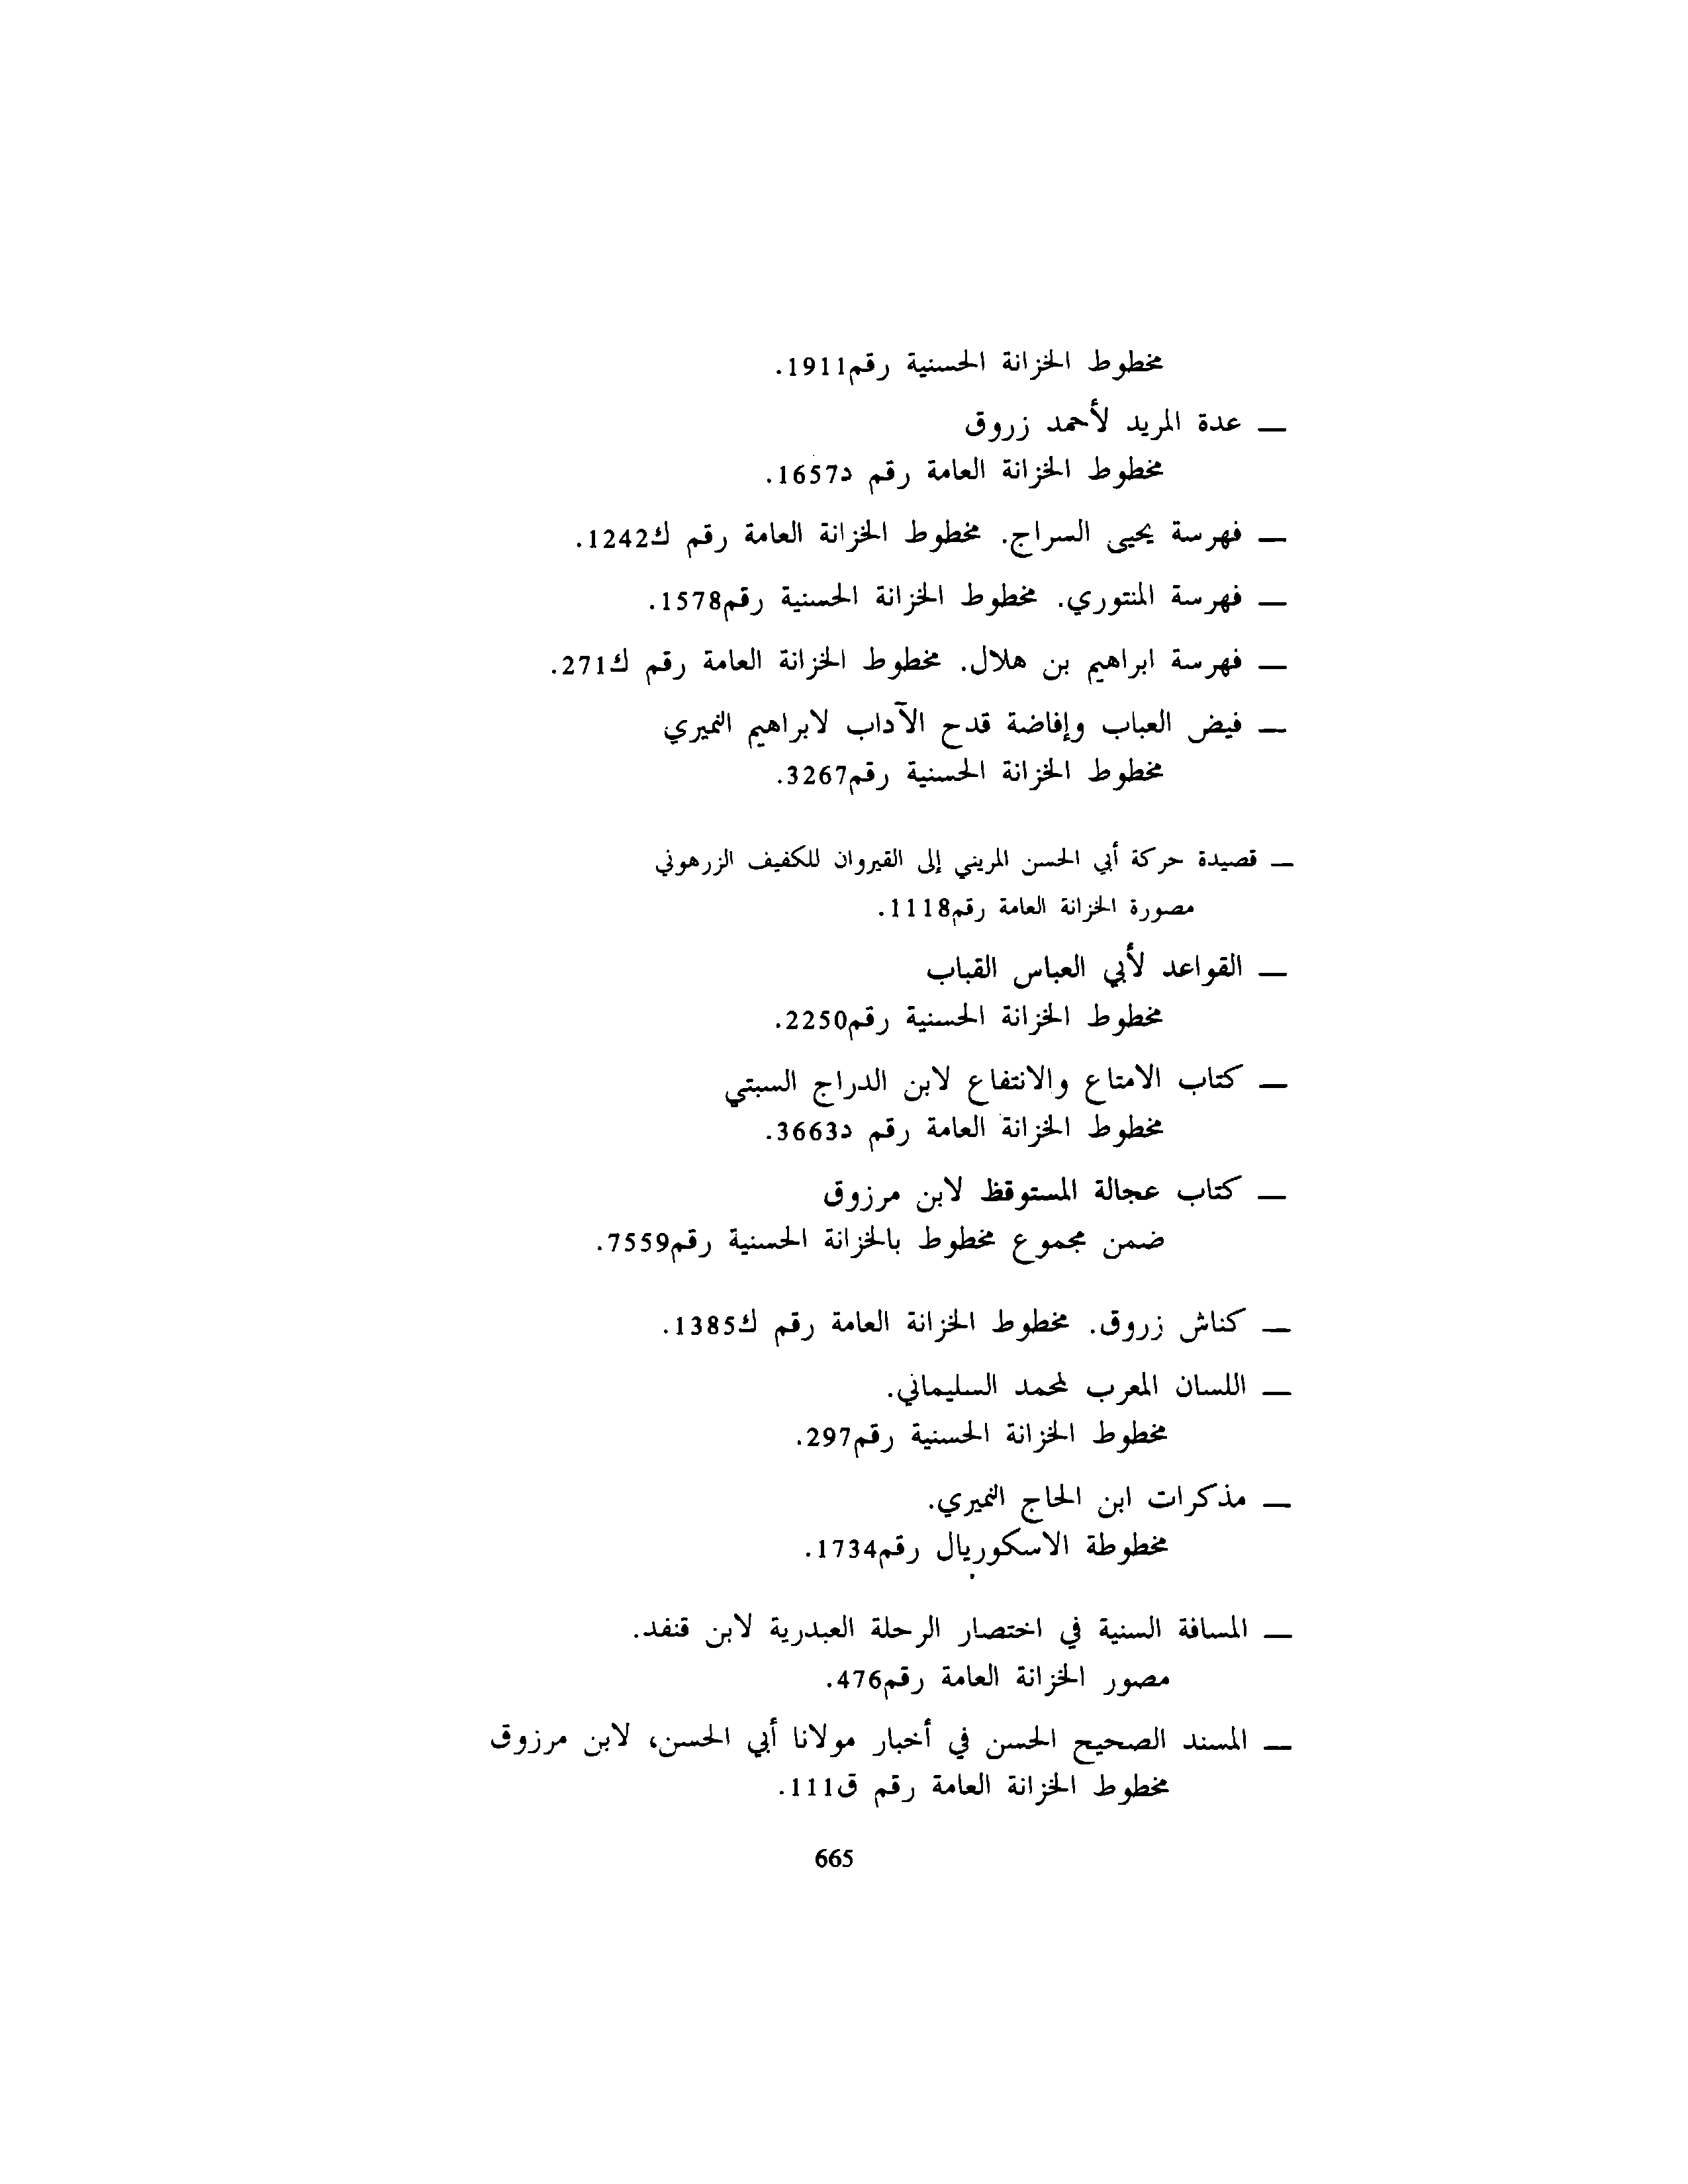 مخطوط الخزانة الحسنية رقم1911.
— عدة المريد لأحمد زروق
مخطوط الخزانة العامة رقم د1657.
— فهرسة يحيى السراج. مخطوط الخزانة العامة رقم ك1242.
— فهرسة المنتوري. مخطوط الخزانة الحسنية رقم1578.
— فهرسة ابراهيم بن هلال. مخطوط الخزانة العامة رقم ك271.
— فيض العباب وإفاضة قدح الآداب لابراهيم النميري
مخطوط الخزانة الحسنية رقم3267.
— قصيدة حركة أبي الحسن المريني إلى القيروان للكفيف الزرهوني
مصورة الخزانة العامة رقم1118.
— القواعد لأبي العباس القباب
مخطوط الخزانة الحسنية رقم2250.
— كتاب الامتاع والانتفاع لابن الدراج السبتي
مخطوط الخزانة العامة رقم د3663.
— كتاب عجالة المستوقظ لابن مرزوق
ضمن مجموع مخطوط بالخزانة الحسنية رقم7559.
— كناش زروق. مخطوط الخزانة العامة رقم ك1385.
— اللسان المعرب لمحمد السليماني.
مخطوط الخزانة الحسنية رقم297.
— مذكرات ابن الحاج النميري.
مخطوطة الاسكوريال رقم1734.
— المسافة السنية في اختصار الرحلة العبدرية لابن قنفد.
مصور الخزانة العامة رقم476.
— المسند الصحيح الحسن في أخبار مولانا أبي الحسن، لابن مرزوق
مخطوط الخزانة العامة رقم ق111.
665